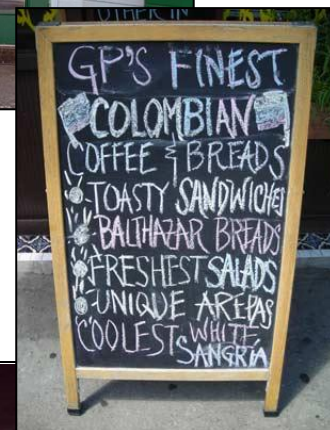 GP'S FINEST
COLOMBIAN
COFFEE & BREADS
TOASTY SANDWICHES
BALTHAZAR BREADS
FRESHEST SALADS
UNIQUE AREPAS
COOLEST WHITE
SANGRIA